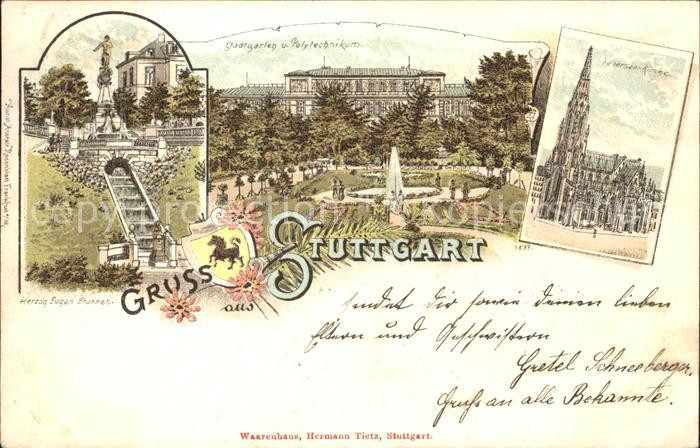 Stadtgarten u. Polytechnikum.
Feuersee-Kirche
Herzog Eugen Brunnen.
1877.
GRUSS
aus
STUTTGART
sendet dir sowie deinen lieben
Eltern und Geschwistern
Gretel Schneeberger.
Gruß an alle Bekannte.
Waarenhaus, Hermann Tietz, Stuttgart.